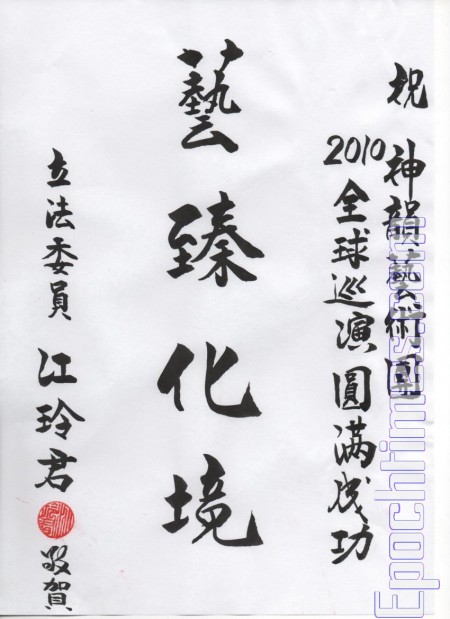 祝
神韻藝術團
2010全球巡演圓滿成功
藝臻化境
立法委員 江玲君 敬賀
Epochtimes.com